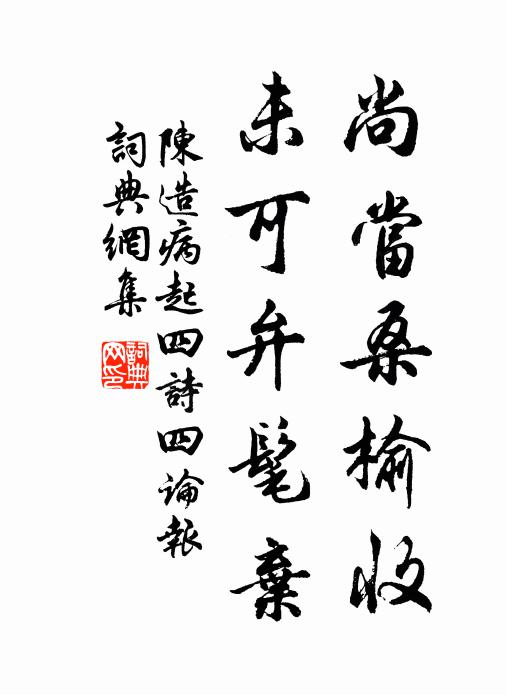 尚當桑榆收
未可弁髦棄
陳造病起四詩四論報
詞典網集
詞典网印